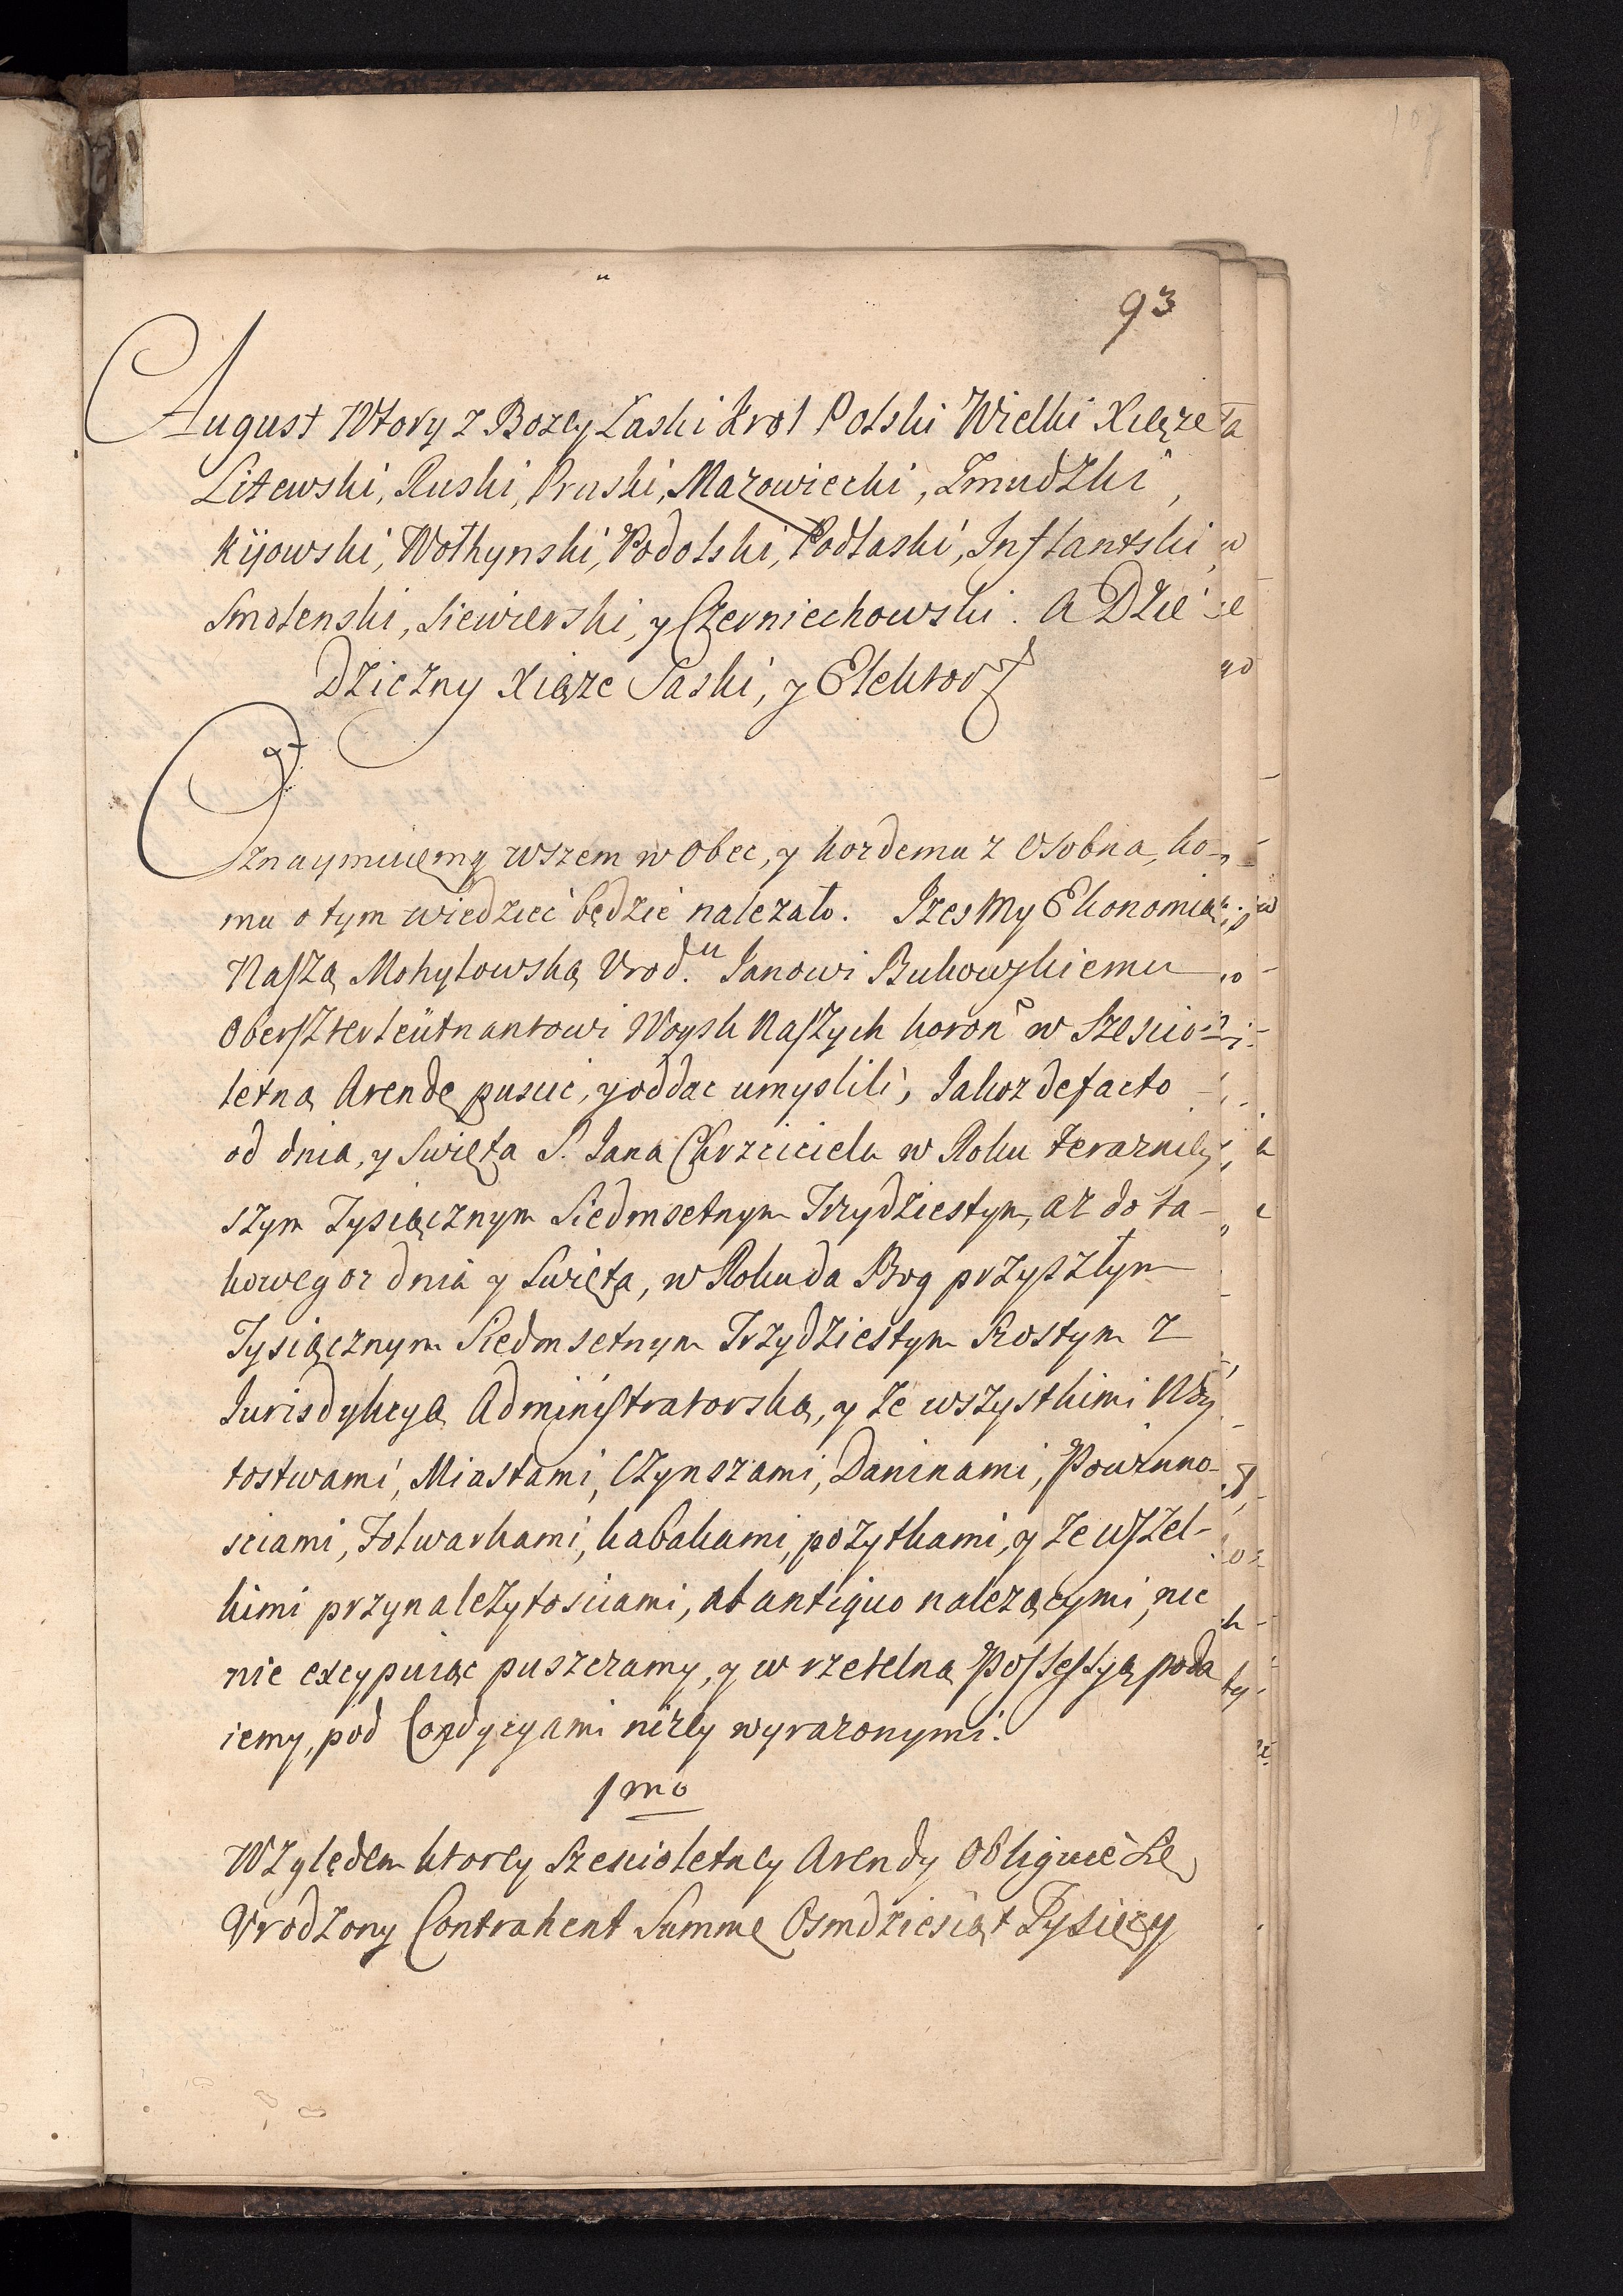 107
93
August Wtory z Bozey Łaski Krol Polski Wielki Xiąze
Litewski, Ruski, Pruski, Mazowiecki, Zmudzki,
Kijowski, Wołhynski, Podolski, Podlaski, Inflantski,
Smolenski, Siewierski, y Czerniechowski. A Dzie
dziczny Xiąze Saski, y Elektor
Oznaymuiemy wszem w obec, y kozdemu z osobna, ko-
mu o tym wiedziec będzie nalezało. Izesmy Ekonomią
Naszą Mohylowską Urod.u Janowi Bukowskiemu
Oberszterleütnantowi Woysk Naszych koron w Szescio-
letną Arendę pusic, y oddac umyslili, Jakoz defacto
od dnia, y Swięta S. Jana Chrzciciela w Roku terazniey
szym Tysiącznym Siedmsetnym Trzydziestym, az do ta-
kowegoz dnia y Swięta, w Roku da Bog przyszłym
Tysiącznym Siedmsetnym Trzydziestym Szostym z
Jurisdykcyą Administratorską, y ze wszystkimi Woy
tostwami, Miastami, Czynszami, Daninami, Powinno-
sciami, Folwarkami, kabakami, pozytkami, y ze wszel-
kimi przynalezytosciami, ab antiquo nalezącymi, nic
nie excypuiąc puszczamy, y w rzetelną Possessyą poda
iemy, pod Condycyami nizey wyrazonymi.
1mo
Względem ktorey Szescioletney Arendy Obliguie Się
Urodzony Contrahent Summę Osmdziesiąt Tysięcy